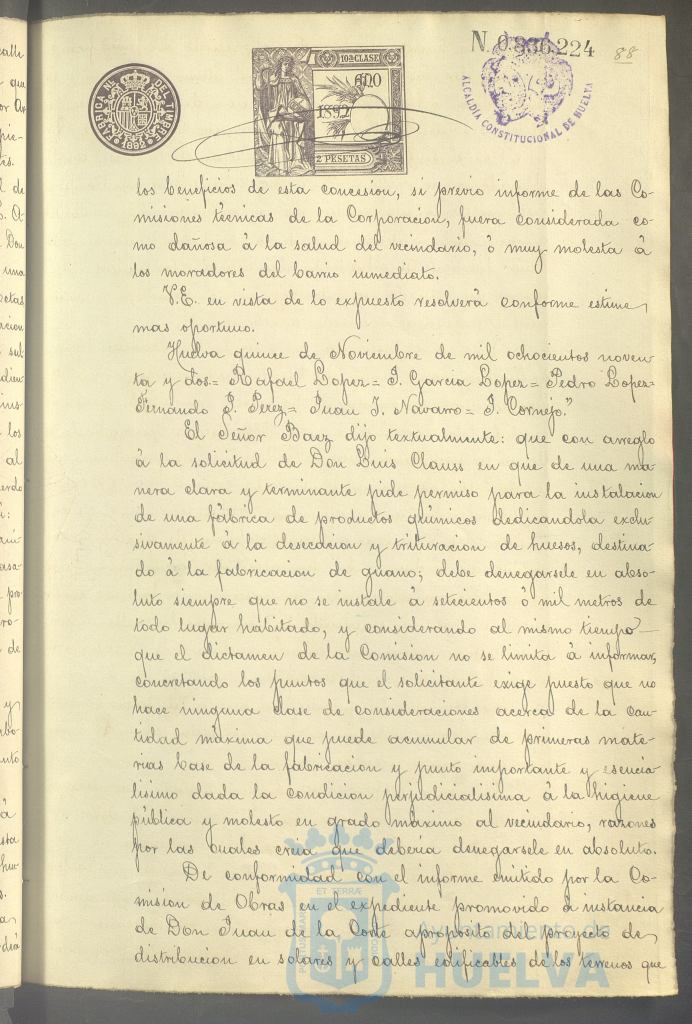 N. 0.836.224
88
FÁBRICA NL. DEL TIMBRE
1892
10ª CLASE
AÑO
1892
2 PESETAS
ALCALDÍA CONSTITUCIONAL DE HUELVA
los beneficios de esta concesion, si previo informe de las Co-
misiones técnicas de la Corporacion, fuera considerada co-
mo dañosa á la salud del vecindario, ó muy molesta á
los moradores del barrio inmediato.
V.E. en vista de lo expuesto resolverá conforme estime
mas oportuno.
Huelva quince de Noviembre de mil ochocientos noven-
ta y dos.= Rafael Lopez= J. Garcia Lopez= Pedro Lopez=
Fernando P. Perez= Juan J. Navarro= J. Cornejo."
El Señor Baez dijo textualmente: que con arreglo
á la solicitud de Don Luis Clauss en que de una ma-
nera clara y terminante pide permiso para la instalacion
de una fábrica de productos químicos dedicandola exclu-
sivamente á la desecacion y trituracion de huesos, destina-
do á la fabricacion de guano; debe denegarsele en abso-
luto siempre que no se instale á setecientos ó mil metros de
todo lugar habitado, y considerando al mismo tiempo
que el dictamen de la Comision no se limita á informar,
concretando los puntos que el solicitante exige puesto que no
hace ninguna clase de consideraciones acerca de la can-
tidad máxima que puede acumular de primeras mate-
rias base de la fabricacion y punto importante y esencia-
lisimo dada la condicion perjudicialisima á la higiene
pública y molesto en grado máximo al vecindario, razones
por las cuales creia que deberia denegarsele en absoluto.
De conformidad con el informe emitido por la Co-
mision de Obras en el expediente promovido á instancia
de Don Juan de la Corte aproposito del proyecto de
distribucion en solares y calles edificables de los terrenos que
Ayuntamiento de
HUELVA